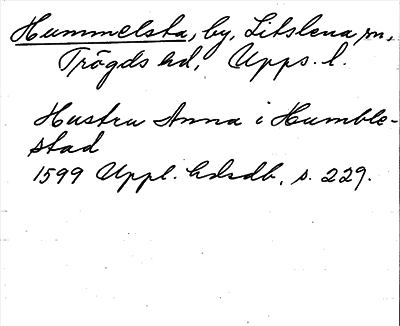 Hummelsta, by, Litslena sn,
Trögds hd, Upps. l.
Hustru Anna i Humble-
stad
1599 Uppl. hdsdb, s. 229.